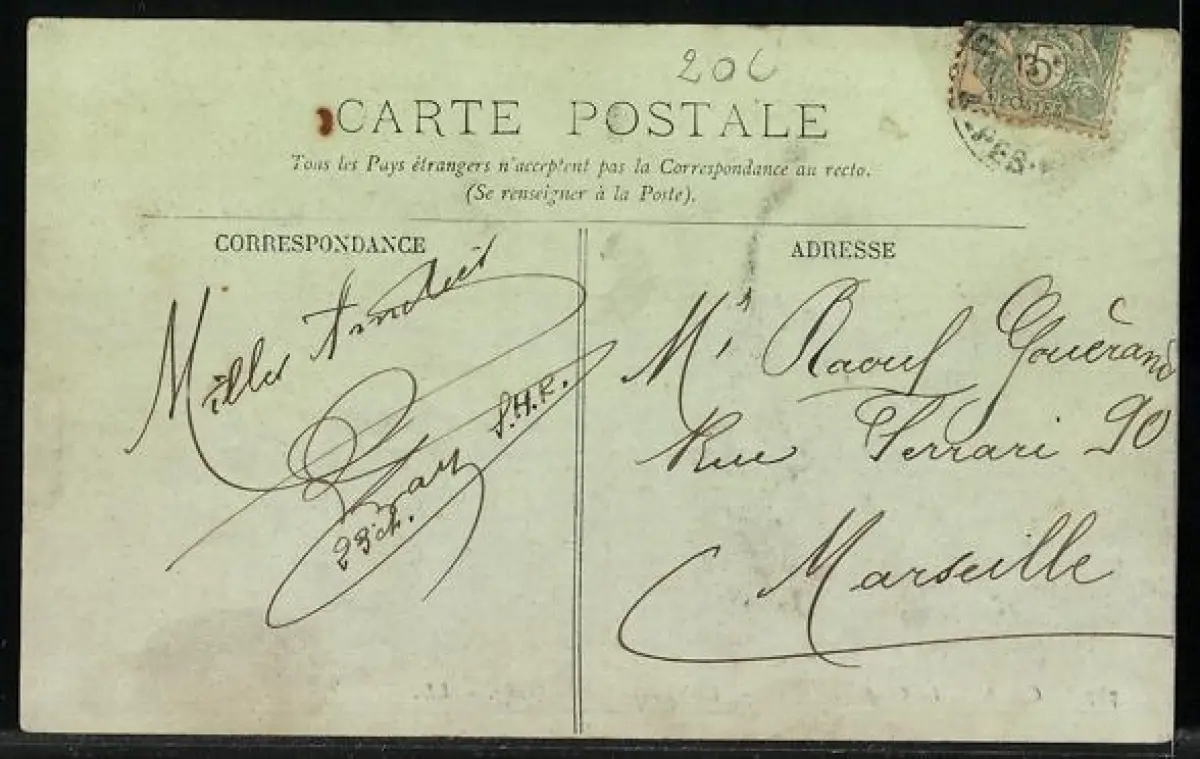 206
CARTE POSTALE
Tous les Pays étrangers n'acceptent pas la Correspondance au recto.
(Se renseigner à la Poste).
CORRESPONDANCE
Milles Amitiés
S.H.R.
29 ch.
ADRESSE
Mr Raoul Gouérand
Rue Ferrari 90
Marseille
5
POSTES